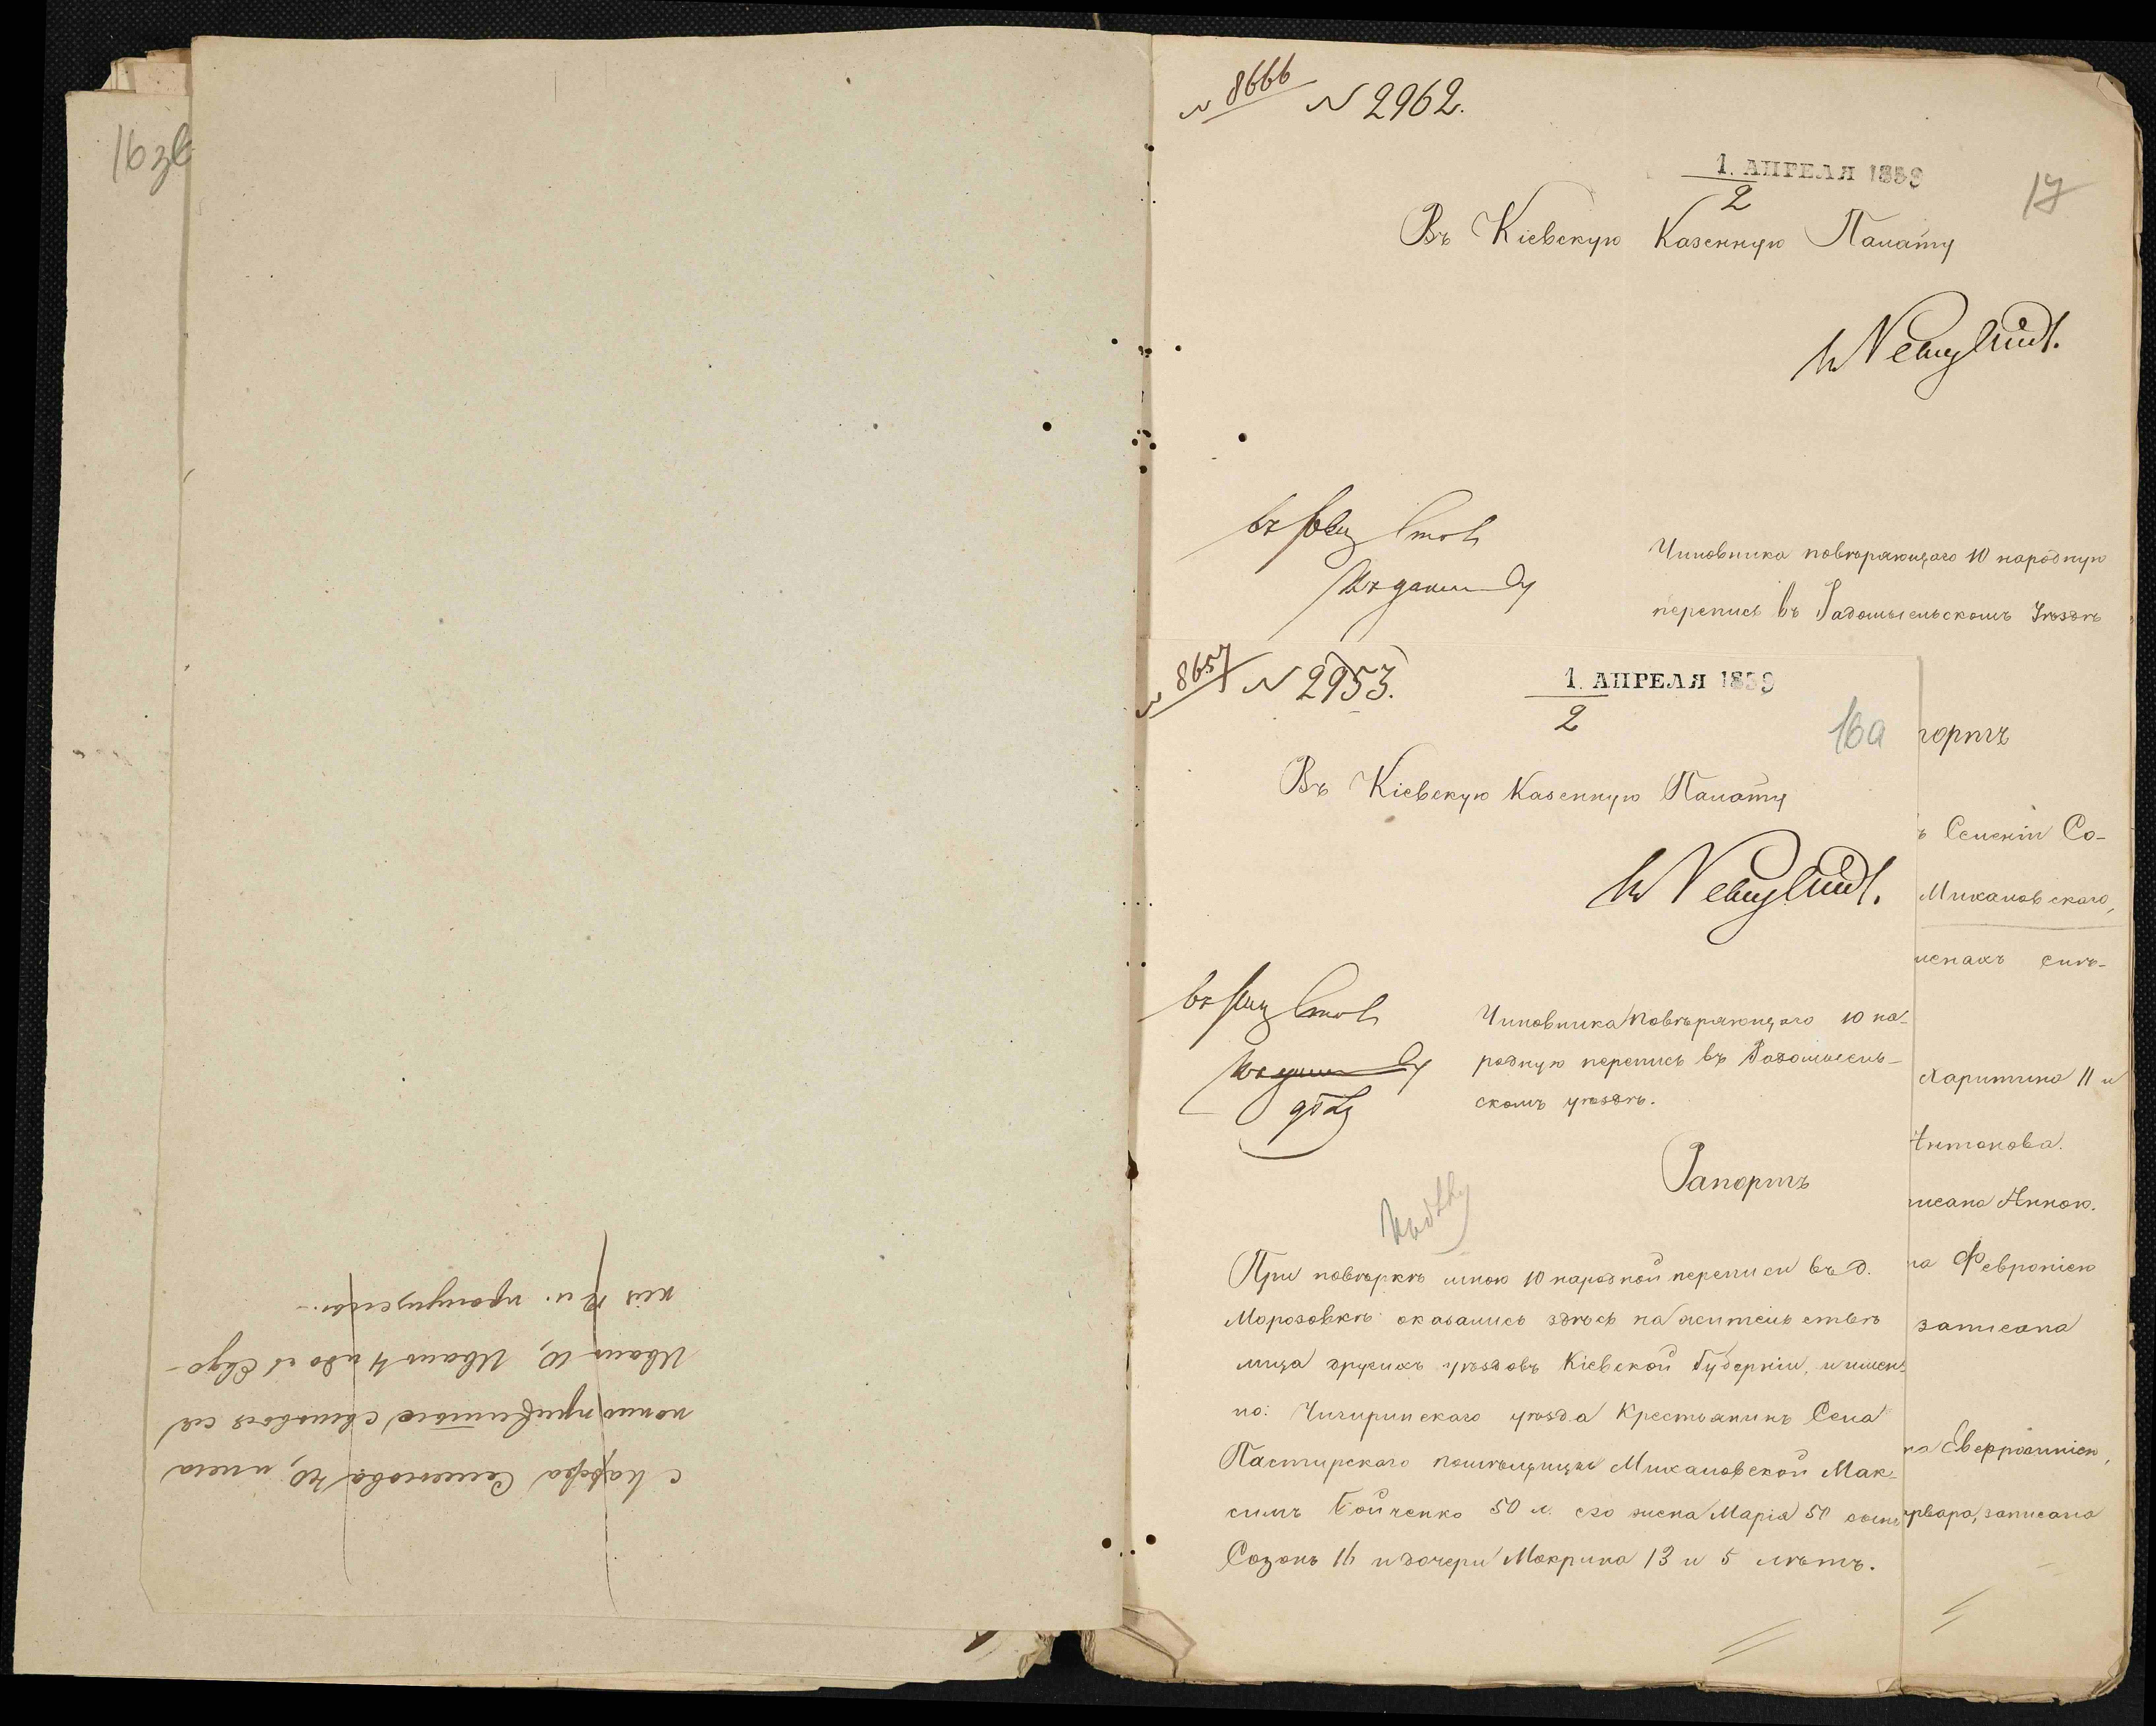 16 зв
№ 8666
N 2962.
1. АПРЕЛЯ 1859
2
17
Въ Кіевскую Казенную Палату
Чиновника повѣряющаго 10 народную
перепись въ Радомысльскомъ Уѣздѣ
№ 8657
N 2953.
1. АПРЕЛЯ 1859
2
16а
Въ Кіевскую Казенную Палату
Чиновника повѣряющаго 10 на-
родную перепись въ Радомысль-
скомъ уѣздѣ.
Рапортъ
При повѣркѣ мною 10 народной переписи въ д.
Морозовкѣ оказались здѣсь на жительствѣ
лица другихъ уѣздовъ Кіевской Губерніи, и имен
но: Чигиринскаго уѣзда Крестьянинъ Села
Пастирскаго помѣщицы Михаловской Мак-
симъ Бойченко 50 л. его жена Марія 50 сынъ
Созонъ 16 и дочери Макрина 13 и 5 лѣтъ.
портъ
ъ Семенъ Со-
Михаловскаго,
искахъ
Харитина 11 и
Антонова.
писана Анною.
на Февроніею
записана
на Евфросиніею,
арвара, записана
с Марфа Семенова 40, и него
Иванъ 10, Иванъ 4 и до
кія пропущены.-